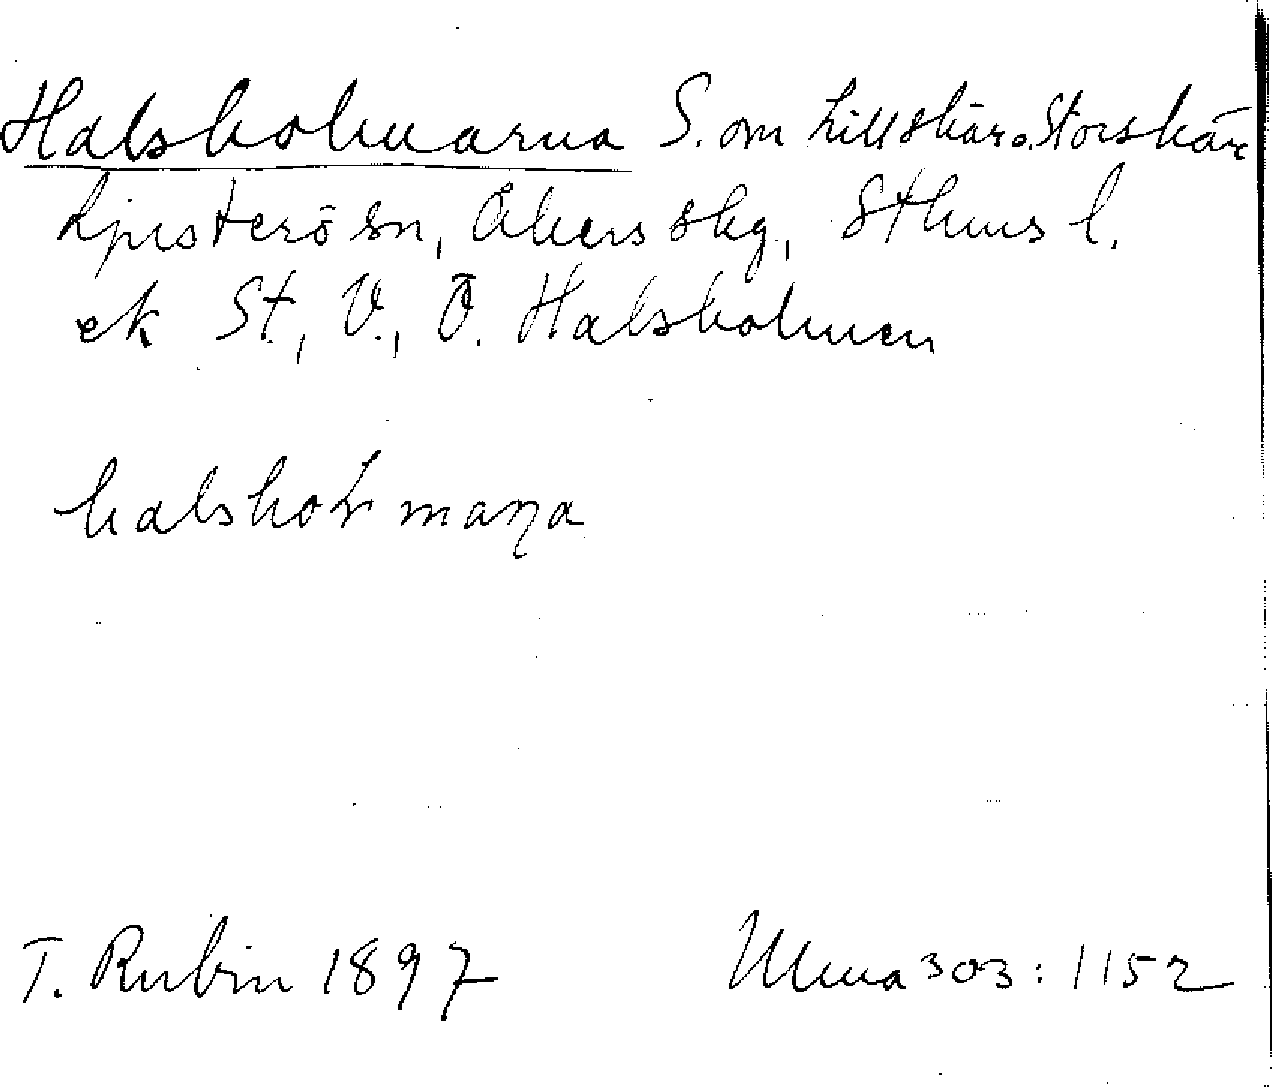 Halsholmarna S. om Lillskär o. Storskär
Ljusterö sn, Åkers skg, Sthms l.
ek St., V., Ö. Halsholmen
halshoLmaɳa
T. Rubin 1897 Ulma 303:1152